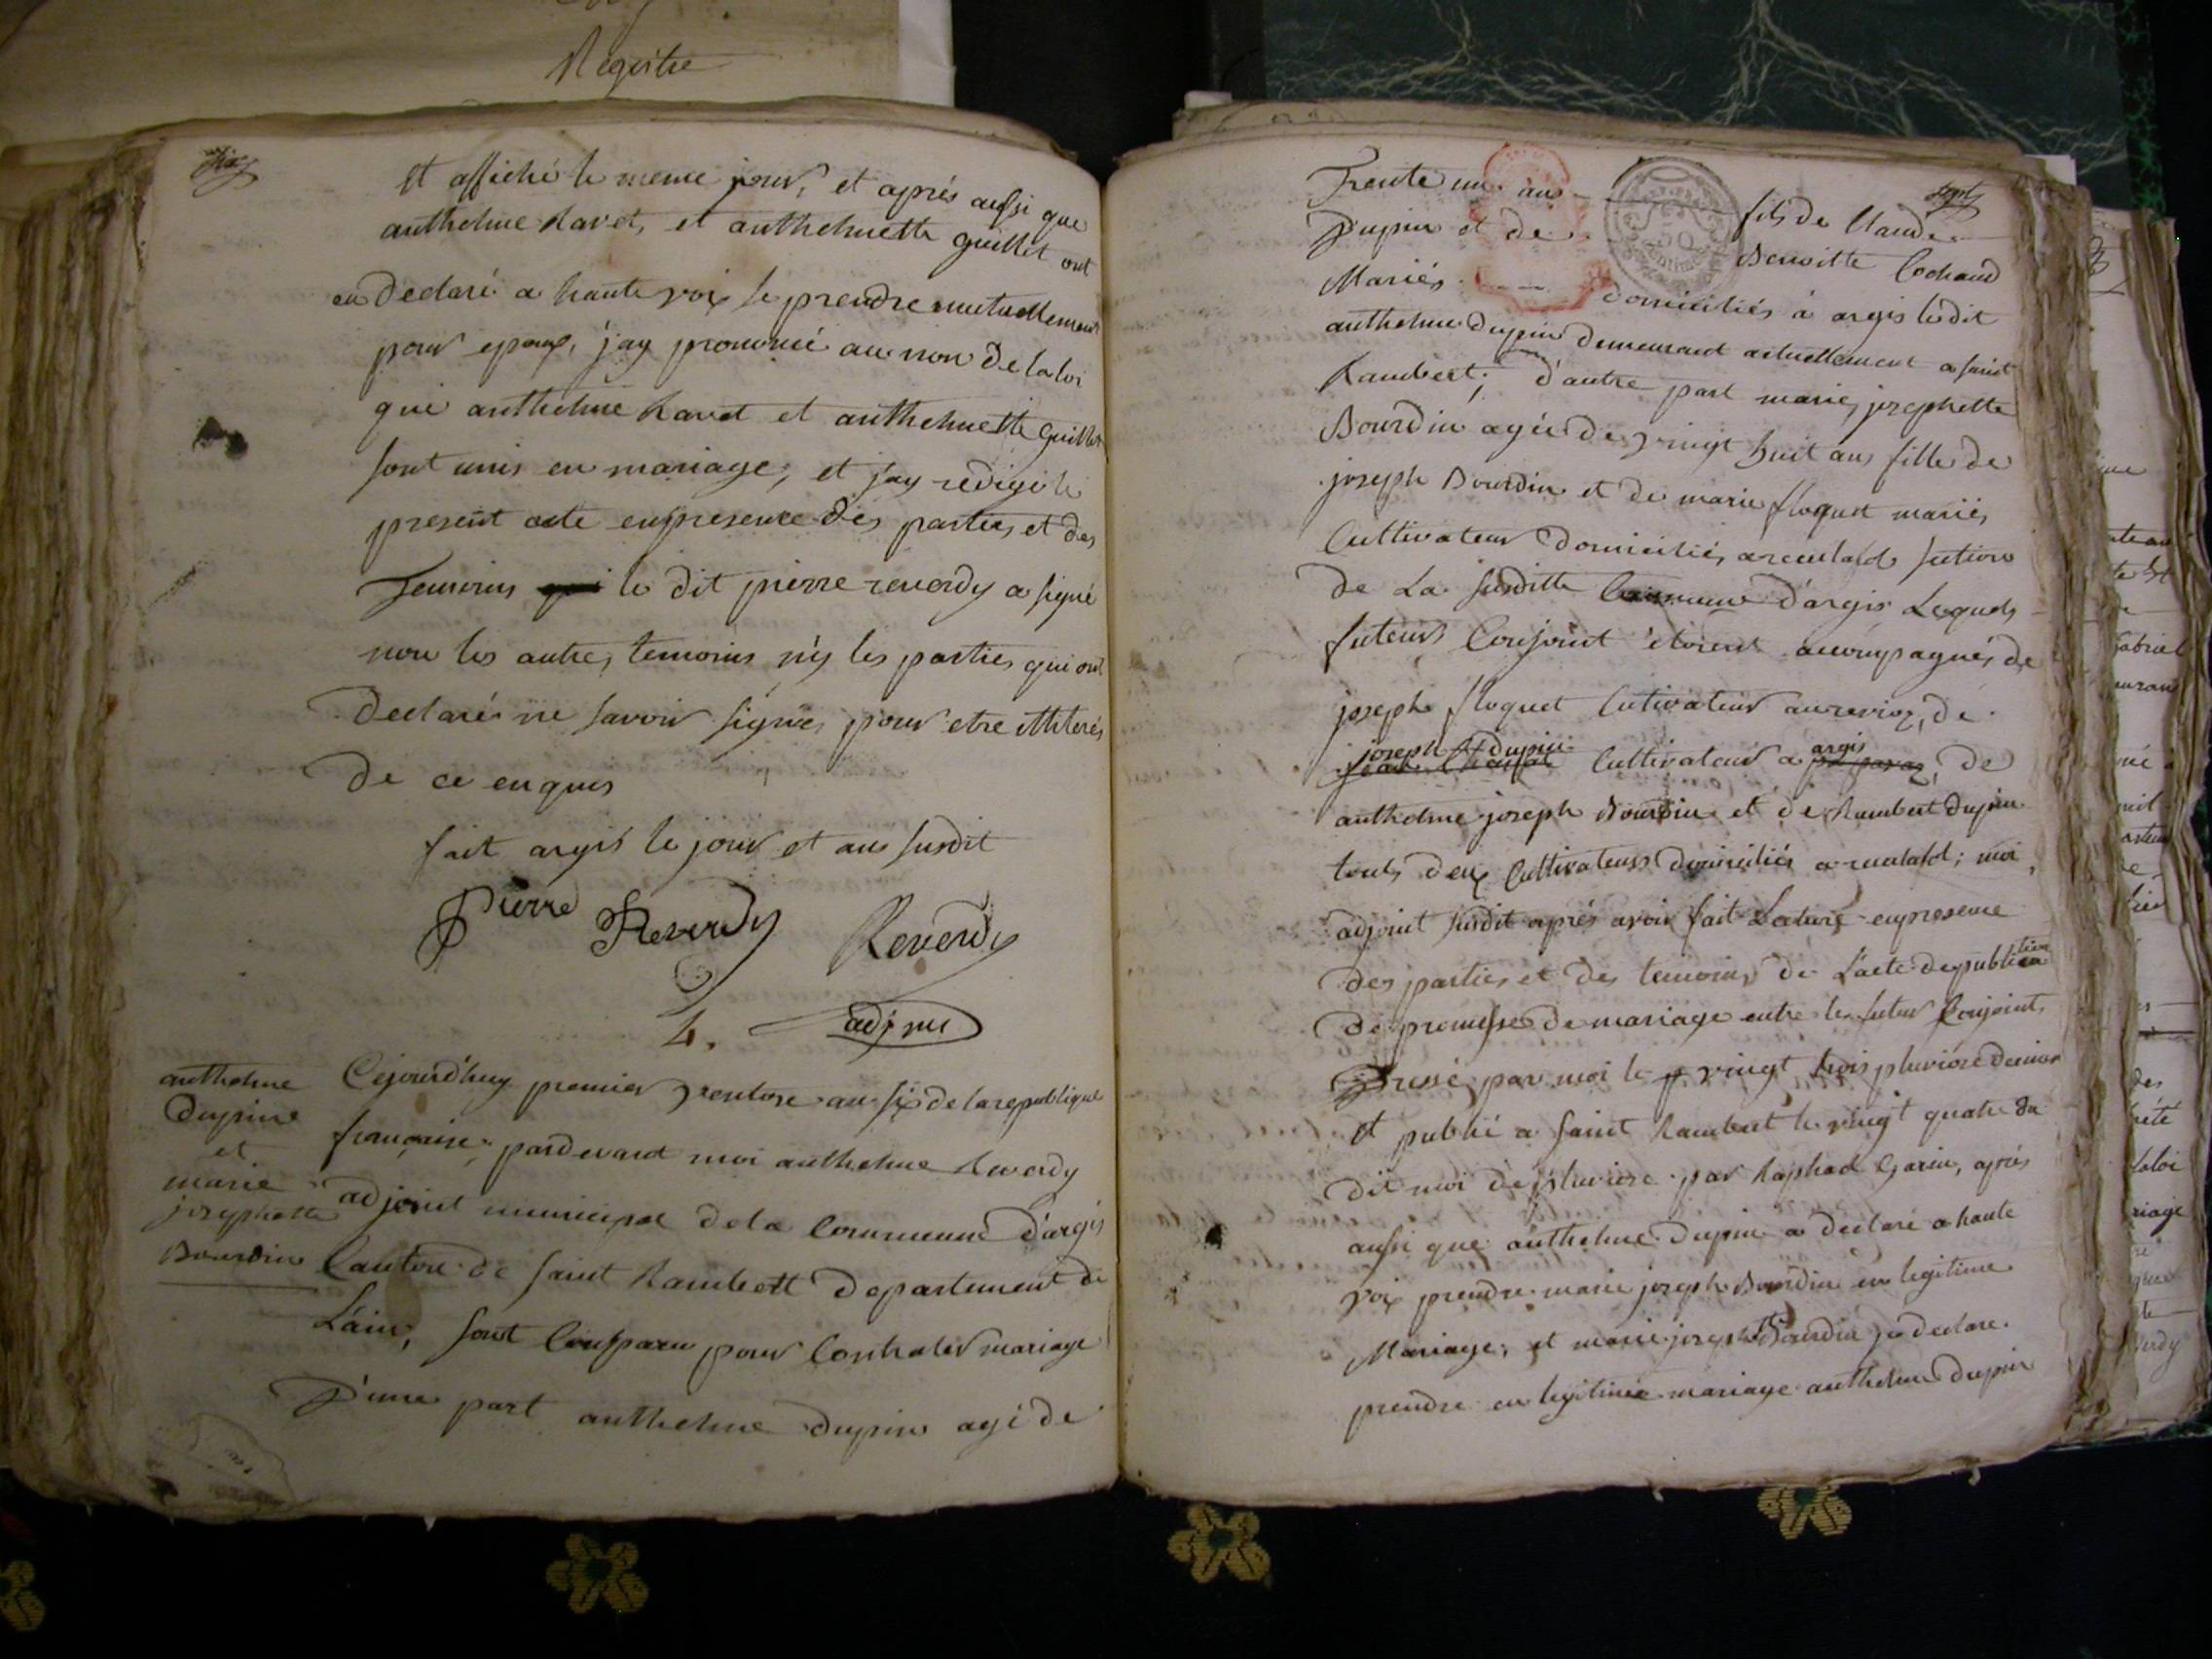 Registre
et affiché le meme jour, et aprés aussi que
anthelme Ravet, et anthelmette guillet ont
en declaré a haute voix se prendre mutuellement
pour epoux, j'ay prononcé au non de la loi
que anthelme Ravet et anthelmette guillet
sont unis en mariage, et j'ay redigé le
present acte en presence des parties et des
Temoins le dit pierre reverdy a signé
non les autres temoins n'y les parties qui ont
declaré ne savoir signer pour etre illiterés
de ce enquis
fait argis le jour et an susdit
Pierre Reverdy Reverdy
adjoint
4.
anthelme
Dupin
et
marie
josephette
Bourdin
Cejourd'huy premier ventose an six de la republique
française pardevant moi anthelme Reverdy
adjoint municipal de la Commune d'argis
Canton de saint Rambert departement de
L'ain, sont Comparu pour Contrater mariage
D'une part anthelme Dupin agé de
sept
Trente un ans fils de Claude
Dupin et de Benoitte Cochand
Mariés domiciliés à argis ledit
anthelme Dupin demeurant actuellement a saint
Rambert; d'autre part marie josephette
Bourdin agée de vingt huit ans fille de
joseph Bourdin et de marie floquet mariés
Cultivateur domiciliés a section
de La susditte Commune d'argis Lesquels
futeurs Conjoint étoient accompagnés de
joseph floquet Cultivateur de
joseph dupin Cultivateur a argis de
anthelme joseph Bourdin et de Rambert dupin
touts deux Cultivateurs domiciliés a moi
adjoint susdit aprés avoir fait Lecture en presence
des parties et des temoins de L'acte de publication
de promesse de mariage entre les futur Conjoint
Dressé par moi le vingt trois pluviose dernier
et publié a saint Rambert le vingt quatre du
dit moi de pluviose par Raphael Garin, aprés
aussi que anthelme Dupin a declaré a haute
voix prendre marie joseph Bourdin en legitime
Mariage, et marie josephte Bourdin je declare
prendre en legitime mariage anthelme Dupin